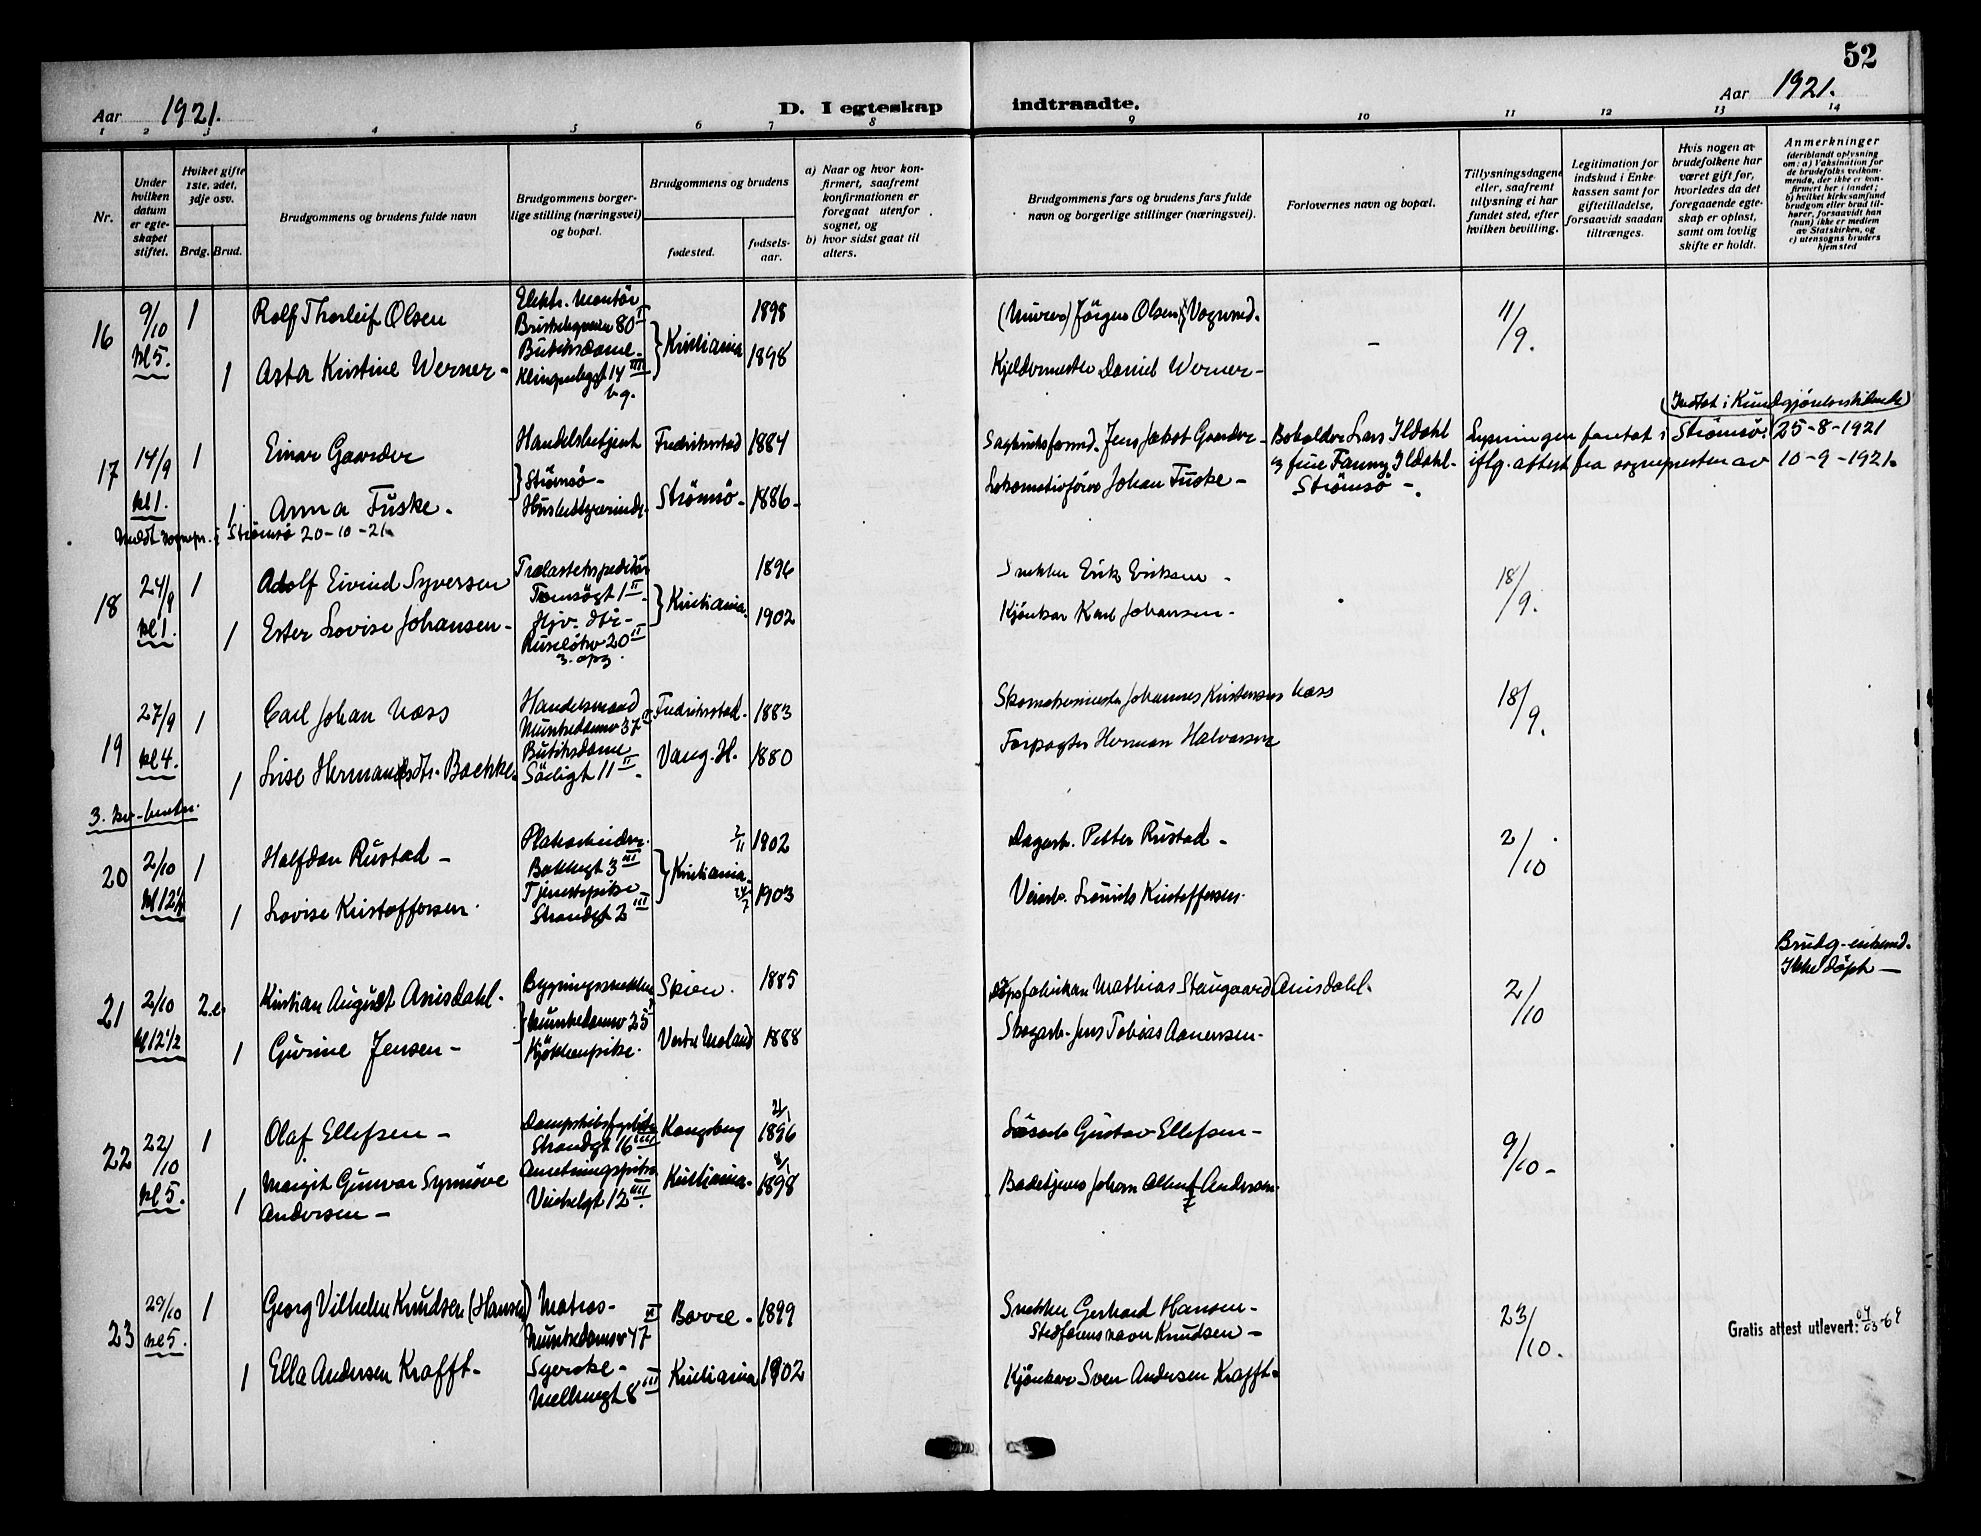 52
Aar 1921.
D. I egteskap indtraadte.
Aar 1921.
1 2 3 4 5 6 7 8 9 10 11 12 13 14
Nr.
Under hvilken datum er egteskapet stiftet.
Hvilket gifte 1ste, 2det, 3dje osv.
Brdg. Brud.
Brudgommens og brudens fulde navn
Brudgommens borgerlige stilling (næringsvei) og bopæl.
Brudgommens og brudens
fødested.
fødselsaar.
a) Naar og hvor konfirmert, saafremt konfirmationen er foregaat utenfor sognet, og
b) hvor sidst gaat til alters.
Brudgommens fars og brudens fars fulde navn og borgerlige stillinger (næringsvei).
Forlovernes navn og bopæl.
Tillysningsdagene eller, saafremt tillysning ei har fundet sted, efter hvilken bevilling.
Legitimation for indskud i Enkekassen samt for giftetilladelse, forsaavidt saadan tiltrænges.
Hvis nogen av brudefolkene har været gift før, hvorledes da det foregaaende egteskap er opløst, samt om lovlig skifte er holdt.
Anmerkninger
(deriblandt oplysning om: a) Vaksination for de brudefolks vedkommende, der ikke er konfirmert her i landet; b) hvilket kirkesamfund brudgom eller brud tilhører, forsaavidt han (hun) ikke er medlem av Statskirken, og c) utensogns bruders hjemsted
16 9/10 kl 5. 1 Rolf Thorleif Olsen Elektr. Montør 80 II Kristiania 1898 (Murer) Jörgen Olsen Vognmd. 11/9.
1 Asta Kristine Werner - Butikdame - Klingenbggt 14 III bg. 1898 Kjeldermester Daniel Werner -
(Indtat i Kundgjörelsestidende)
17 14/9 kl 1. 1 Einar Gaarder Handelsbetjent Fredrikstad 1884 Jens Jakob Gaarder - Bokholder Lars Ildahl Lysningen foretat i Strømsø. 25-8-1921
Strömsö - og frue Fanny Ildahl - iflg. attest fra sognepresten av 10-9-1921.
1 Anna Fuske. Husbestyrerinde - Strømsø - 1886 - Lokomotivfører Johan Fuske - Strømsø -.
Meldt sognepr. i Strømsø 20-10-21.
18 24/9 kl 1. 1 Adolf Eivind Syversen Trælastekspeditör Tomsögt 1 II - Kristiania. 1896 Snekker Erik Eriksen - 18/9.
1 Ester Lovise Johansen - Hjv. dtr - Ruseløkv 20 II 3. opg. 1902 Kjörekar Karl Johansen -
19 27/9 kl 4. 1 Carl Johan Næss Handelsmand Munkedamsv 37 II Fredrikstad. 1883 Skomakermester Johannes Kristensen Næss 18/9.
1 Lise Hermansdtr. Baekke. Butikdame Sörligt 11 II. Vang. H. 1880 Forpagter Herman Halvorsen
3. kv-
20 2/10 kl 12 1/2 1 Halfdan Rustad - Platearbeider. Bakkegt 3 III Kristiania. 2/11 1902 Dagarb. Petter Rustad - 2/10
1 Lovise Kristoffersen. Tjenestepike Strandgt 2 III 24/7 1903 Veiarb. Kristoffersen.
Brudg - enkemd. Ikke döpt -
21 2/10 kl 12 1/2 2.e. Kristian August Anisdahl. Bygningssnekker Skien. 1885 Mathias Stengaard Anisdahl. 2/10
Munkedamsv 25
1 Gurine Jensen - Kjøkkenpike. Vestre Moland 1888 Skogarb. Jens Tobias Aanensen -
22 22/10 kl 5. 1 Olaf Ellefsen - Dampskibsfyrböter Strandgt 16 III Kongsberg 1896 Gustav Ellefsen - 9/10 -
1 Margit Gunvor Synnöve Andersen - Anretningspike Kristiania. 8/1 1898 Badetjener Johan Andersen.
23 29/10 kl 5. 1 Georg Vilhelm Knudsen (Hansen) Matros - Munkedamsv 47 II Borre - 1899 Snekker Gerhard Hansen - Stedfarens navn Knudsen - 23/10. Gratis attest utlevert: 04/03-64
1 Ella Andersen Krafft - Syerske - Mellemgt 8 III Kristiania 1902 Kjörekar Sven Andersen Krafft.